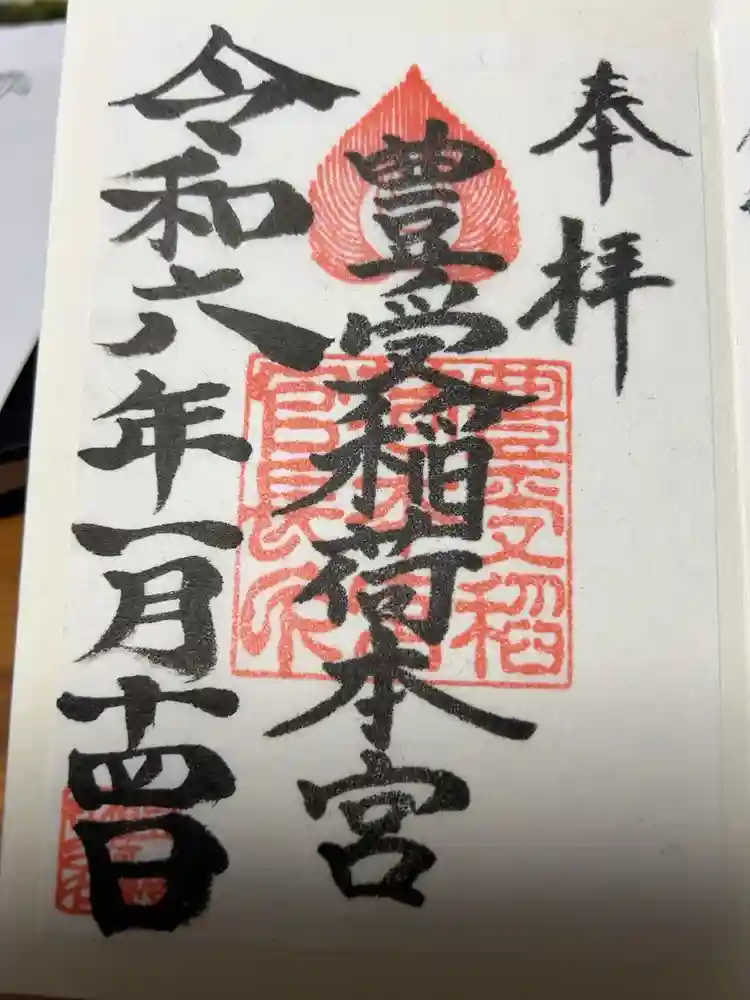 奉拝
豊受稲荷本宮
令和六年一月十四日